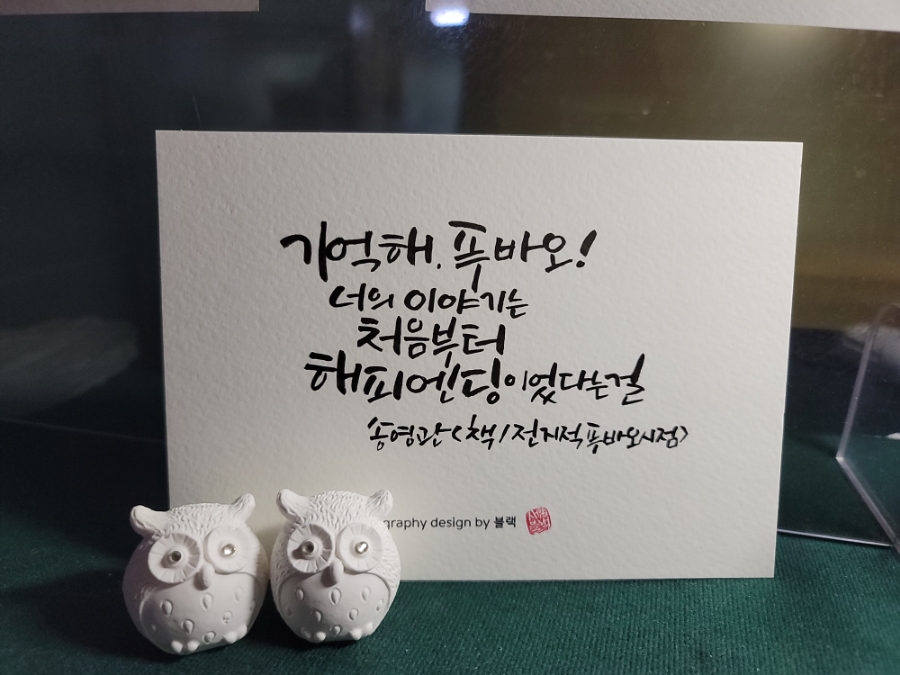 기억해, 푸바오!
너의 이야기는
처음부터
해피엔딩이었다는걸
송영관<책/전지적푸바오시점>
graphy design by 블랙